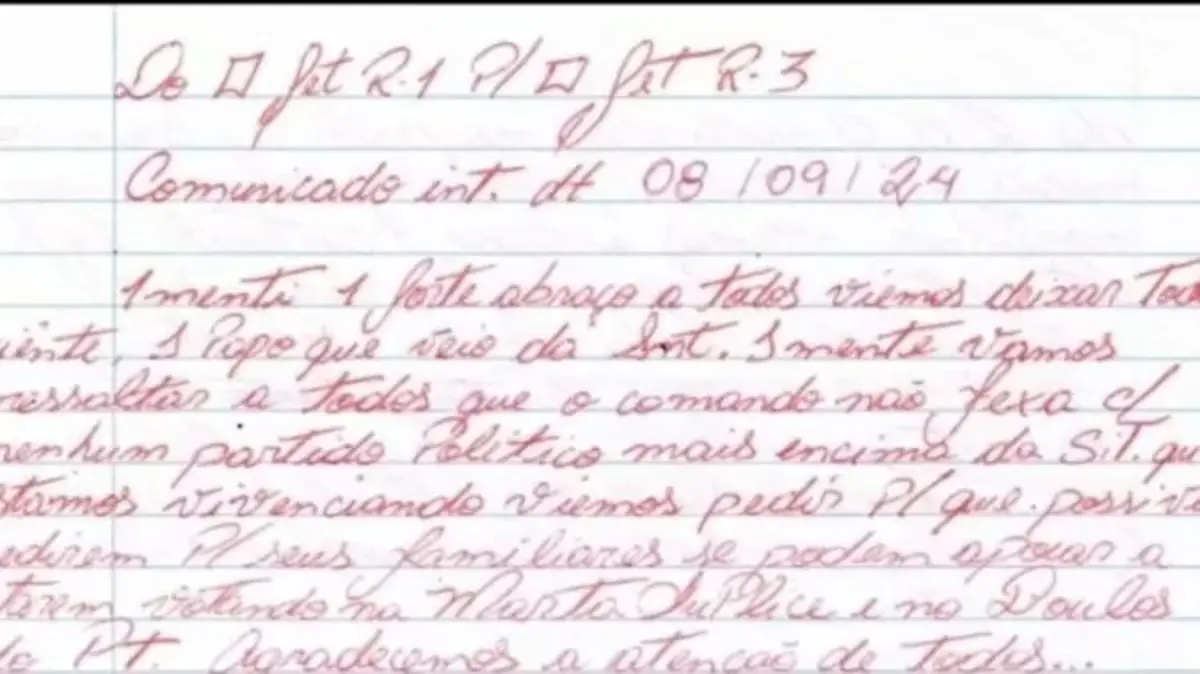 Do □ Jet R.1 P/ □ Jet R.3
Comunicado int. dt 08/09/24
1menti 1 forte abraço a todos viemos deixar Tod
iente, 1 Papo que veio da Sint. 1mente vamos
ressaltar a todos que o comando não fexa c/
nenhum partido Politico mais encima da S.T. qu
stamos vivenciando viemos pedir P/ que possiv
edirem P/ seus familiares se podem apoiar a
tarem votando na Marta SuPlice e no Boulos
do PT. Agradecemos a atenção de todos...